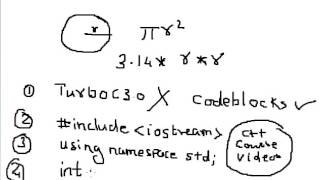 r πr²
3.14 * r * r
① Turboc3.0 X Codeblocks ✓
② #include <iostream>
③ using namespace std;
④ int
C++
Course
Videos